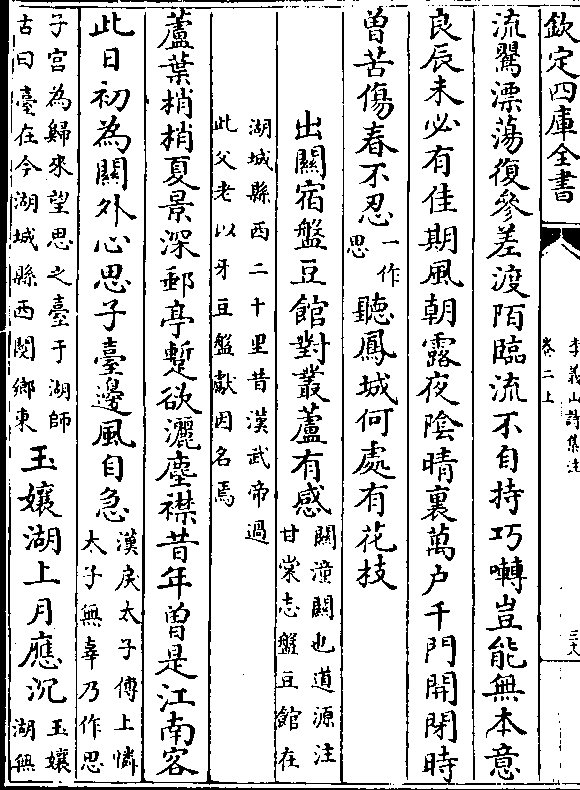 欽定四庫全書
李義山詩集注
卷二上
三六
流鶯漂蕩復參差渡陌臨流不自持巧囀豈能無本意
良辰未必有佳期風朝露夜陰晴裏萬户千門開閉時
曾苦傷春不忍一作思聽鳳城何處有花技
出關宿盤豆館對叢蘆有感關潼關也道源注甘棠志盤豆館在
湖城縣西二十里昔漢武帝過此父老以牙豆盤獻因名焉
蘆葉梢梢夏景深郵亭蹔欲灑塵襟昔年曽是江南客
此日初為關外心思子臺邊風自急漢戾太子傳上憐太子無辜乃作思
子宫為歸來望思之臺于湖師古曰臺在今湖城縣西閿鄉東玉孃湖上月應沉玉孃湖無